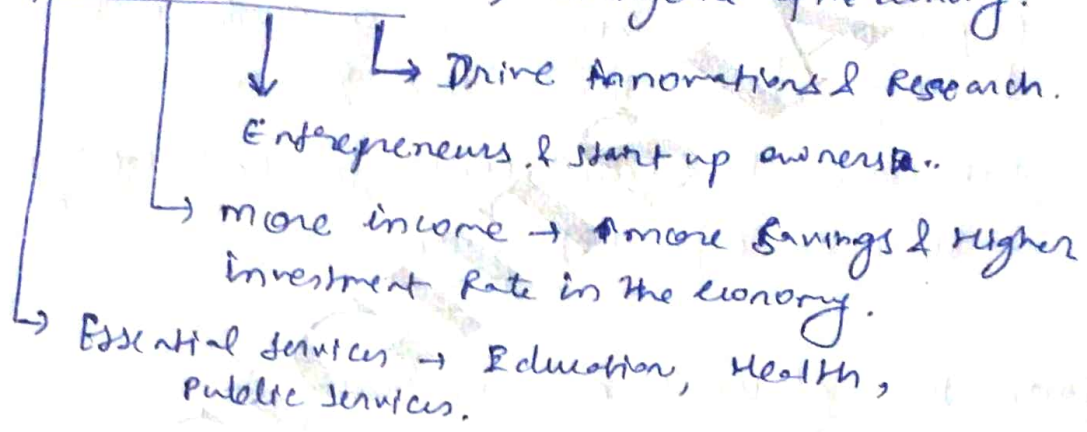 economy.
→ Drive Annovations & Research.
Entrepreneurs & start up owners..
→ more income → ↑more Savings & Higher
investment Rate in the economy.
→ Essential services → Education, Health,
Public Services.